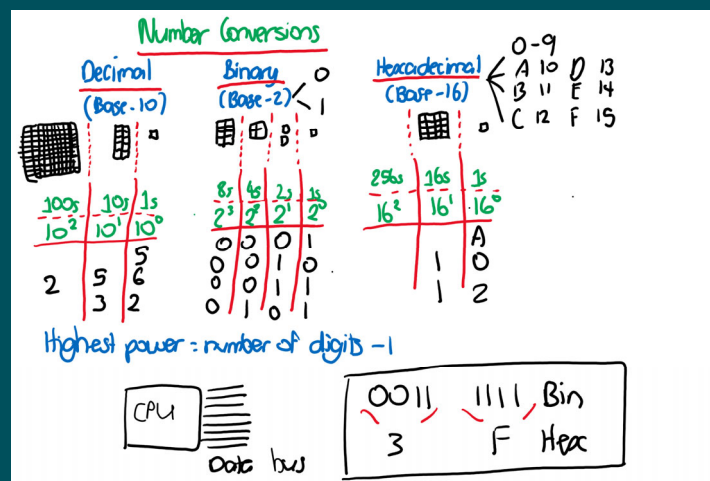 Number Conversions
Decimal
(Base-10)
100s 10s 1s
10² 10¹ 10⁰
5
2 5 6
3 2
Binary
(Base-2) 0
1
8s 4s 2s 1s
2³ 2² 2¹ 2⁰
0 0 0 1
0 0 1 0
0 0 1 1
0 1 0 1
Hexadecimal
(Base-16)
0-9
A 10 D 13
B 11 E 14
C 12 F 15
256s 16s 1s
16² 16¹ 16⁰
A
1 0
1 2
Highest power = number of digits -1
CPU
Data bus
0011 1111 Bin
3 F Hex